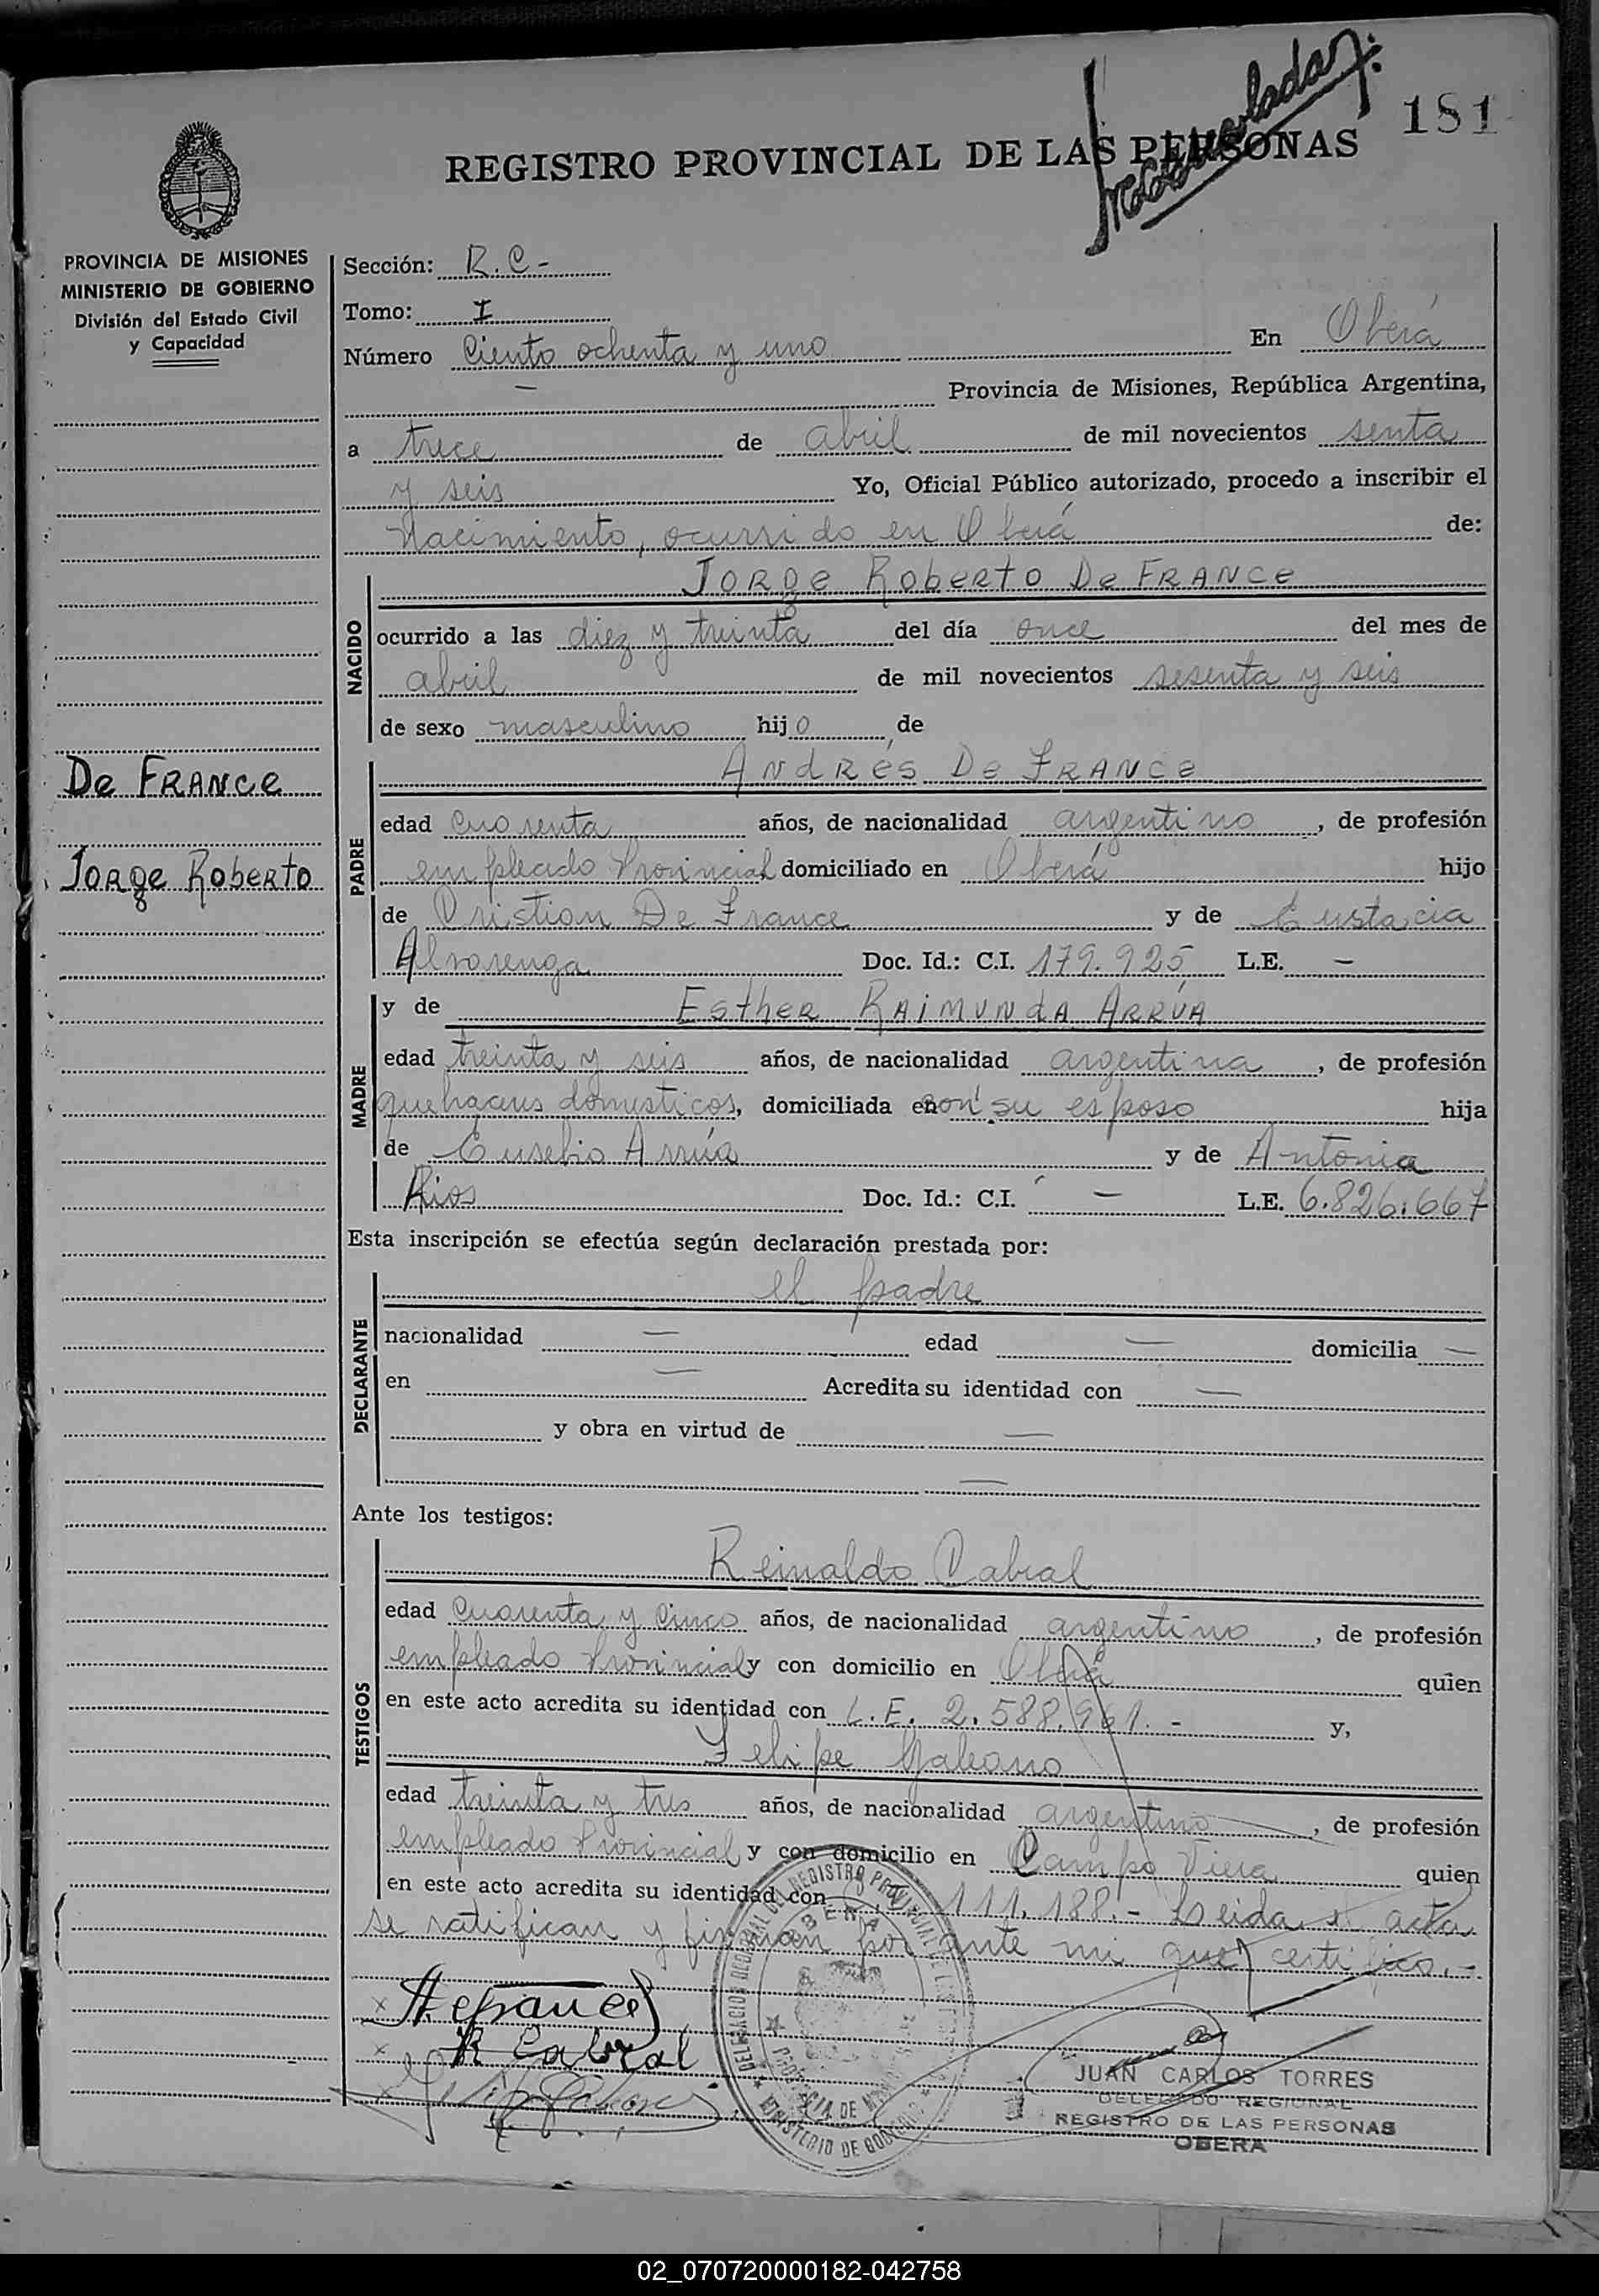 Matriculado
181
REGISTRO PROVINCIAL DE LAS PERSONAS
PROVINCIA DE MISIONES
MINISTERIO DE GOBIERNO
División del Estado Civil
y Capacidad
De FRANCE
Jorge Roberto
Sección: R.C-
Tomo: I
Número Ciento ochenta y uno En Oberá
- Provincia de Misiones, República Argentina,
a trece de abril de mil novecientos senta
y seis Yo, Oficial Público autorizado, procedo a inscribir el
Nacimiento, ocurrido en Oberá de:
NACIDO
Jorge Roberto De FRANCE
ocurrido a las diez y treinta del día once del mes de
abril de mil novecientos sesenta y seis
de sexo masculino hijo de
PADRE
Andrés De FRANCE
edad cuarenta años, de nacionalidad argentino, de profesión
empleado Provincial domiciliado en Oberá hijo
de Cristian De France y de Eustacia
Alvarenga Doc. Id.: C.I. 179.925 L.E. -
MADRE
y de Esther RAIMUNdA ARRÚA
edad treinta y seis años, de nacionalidad argentina, de profesión
quehaceres domesticos, domiciliada en con su esposo hija
de Eusebio Arrúa y de Antonia
Rios Doc. Id.: C.I. - L.E. 6.826.667
Esta inscripción se efectúa según declaración prestada por:
DECLARANTE
el padre
nacionalidad — edad — domicilia —
en — Acredita su identidad con —
y obra en virtud de —
—
Ante los testigos:
TESTIGOS
Reinaldo Cabral
edad Cuarenta y Cinco años, de nacionalidad argentino, de profesión
empleado Provincial y con domicilio en Oberá quien
en este acto acredita su identidad con L.E. 2.588.961.- y,
Felipe Galeano
edad treinta y tres años, de nacionalidad argentino, de profesión
empleado Provincial y con domicilio en Campo Viera quien
en este acto acredita su identidad con 111.188.- Leida el acta
se ratifican y firman por ante mi que certifico.-
Defrance
R Cabral
Felipe Galeano
OBERA
PROVINCIA DE MISIONES
MINISTERIO DE GOBIERNO
JUAN CARLOS TORRES
DELEGADO REGIONAL
REGISTRO DE LAS PERSONAS
OBERA
02_070720000182-042758